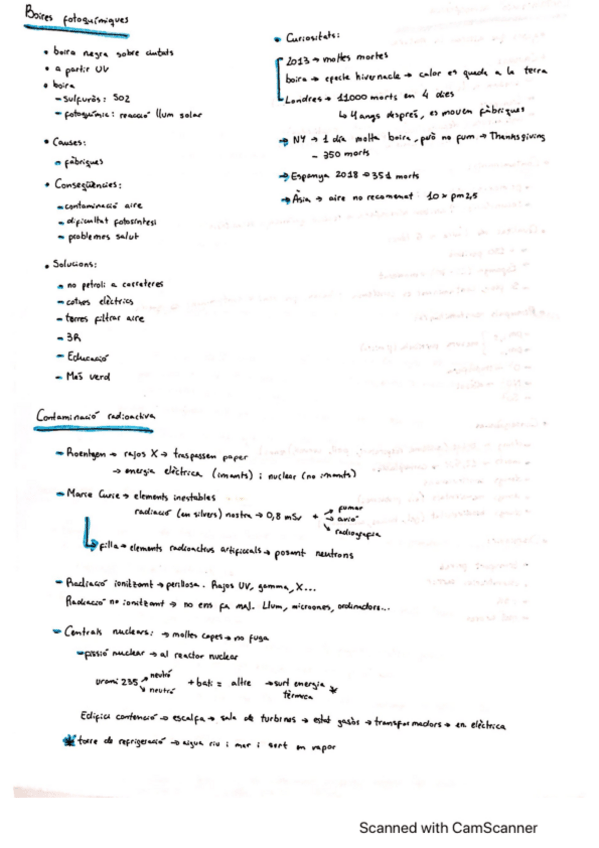 Boires fotoquímiques
• boira negra sobre ciutats
• a partir UV
• boira
– sulfurós: SO2
– fotoquímic: reacció llum solar
• Causes:
– fàbriques
• Conseqüències:
– contaminació aire
– dificultat fotosíntesi
– problemes salut
• Solucions:
– no petroli a carreteres
– cotxes elèctrics
– torres filtrar aire
– 3R
– Educació
– Més verd
• Curiositats:
2013 → moltes mortes
boira → efecte hivernacle → calor es queda a la terra
Londres → 11000 morts en 4 dies
↳ 4 anys després, es moven fàbriques
→ NY → 1 dia molta boira, però no fum → Thanksgiving
– 350 morts
→ Espanya 2018 → 351 morts
→ Àsia → aire no recomenat 10 × pm2,5
Contaminació radioactiva
– Roentgen → rajos X → traspassen paper
→ energia elèctrica (imants) i nuclear (no imants)
– Marie Curie → elements inestables
radiació (en silvers) nostra → 0,8 mSv + → fumar
→ avió
→ radiografia
→ filla → elements radioactius artificials → posant neutrons
– Radiació ionitzant → perillosa. Rajos UV, gamma, X...
Radiació no ionitzant → no ens fa mal. Llum, microones, ordinadors...
– Centrals nuclears: → moltes capes → no fuga
– fissió nuclear → al reactor nuclear
urani 235 → neutró
→ neutró + bati = altre → surt energia tèrmica
Edifici contenció → escalfa → sala de turbines → estat gasós → transformadors → en elèctrica
* torre de refrigeració → aigua riu i mar i surt en vapor
Scanned with CamScanner